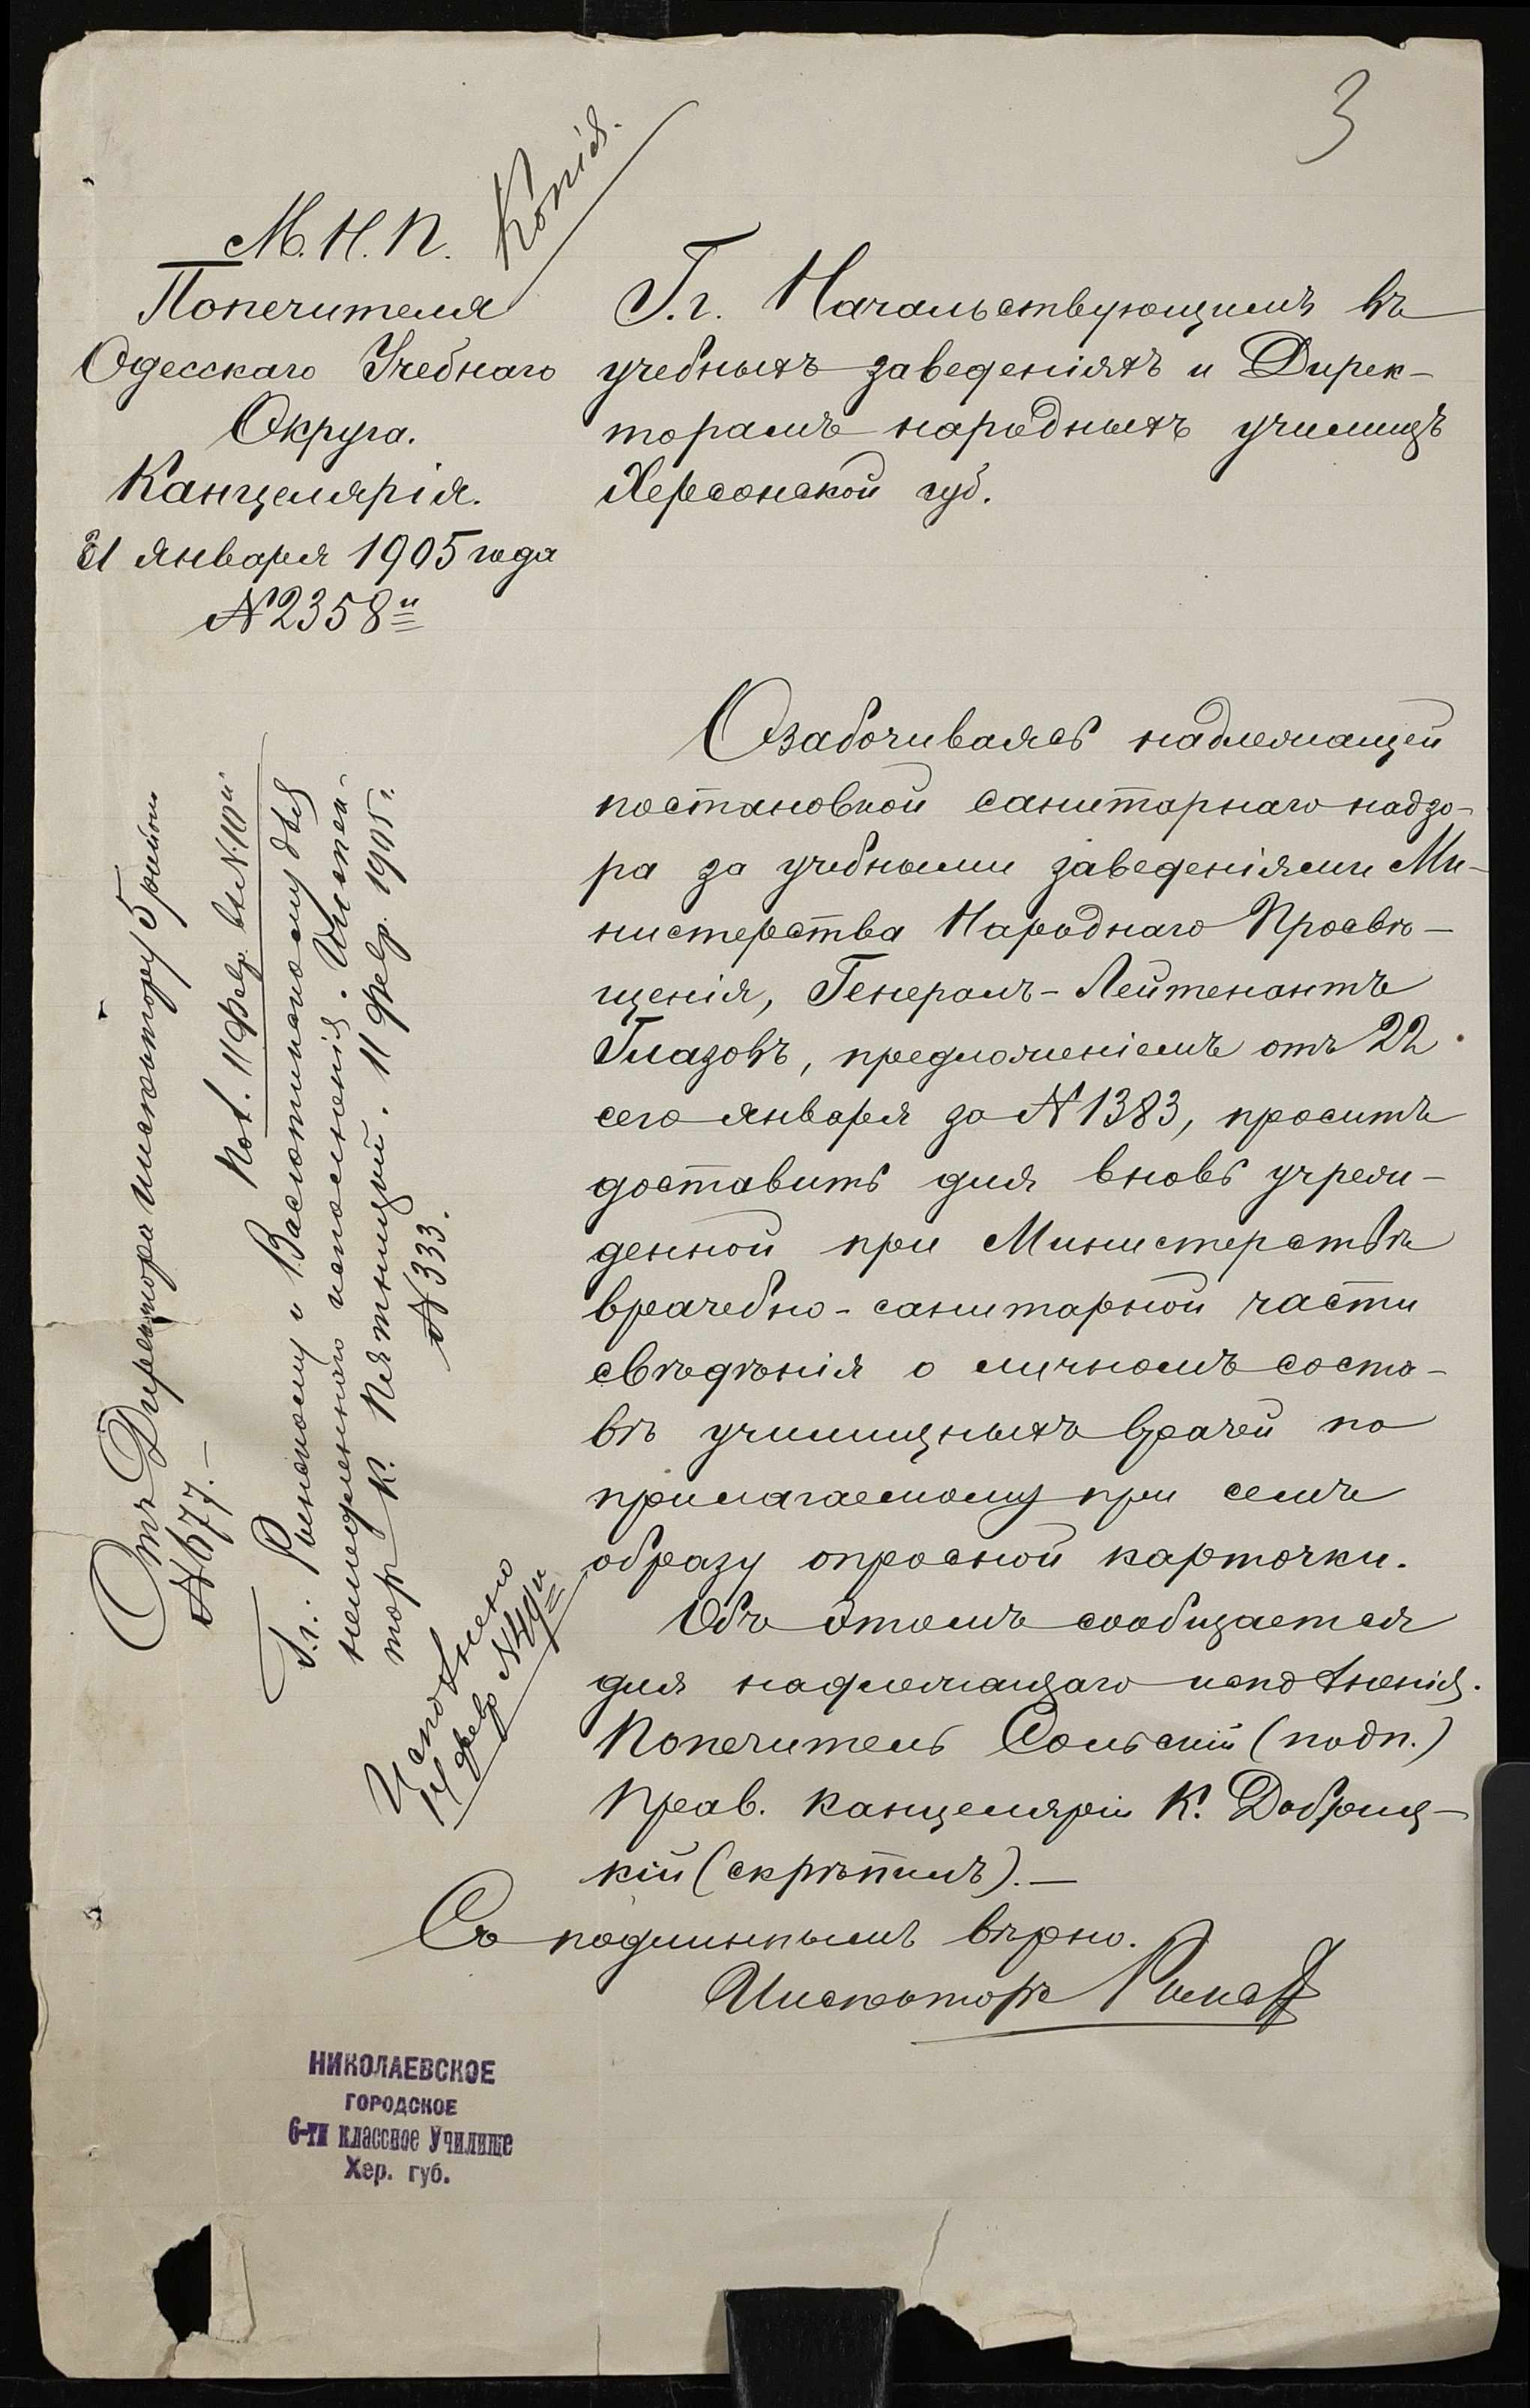 3
Копія.
М. Н. П.
Попечителя
Одесскаго Учебнаго
Округа.
Канцелярія.
31 Января 1905 года
№ 2358
Г.г. Начальствующимъ въ
учебныхъ заведеніяхъ и Дирек-
торамъ народныхъ училищъ
Херсонской губ.
Озабочиваясь надлежащей
постановкой санитарнаго надзо-
ра за учебными заведеніями Ми-
нистерства Народнаго Просвѣ-
щенія, Генералъ-Лейтенантъ
Глазовъ, предложеніемъ отъ 22
сего Января за № 1383, проситъ
доставить для вновь учреж-
денной при Министерствѣ
врачебно-санитарной части
свѣдѣнія о личномъ соста-
вѣ училищныхъ врачей по
прилагаемому при семъ
образу опросной карточки.
Объ этомъ сообщается
для надлежащаго исполненія.
Попечитель Сольскій (подп.)
Прав. Канцеляріи К. Добрыц-
кій (скрѣпилъ).—
Съ подлиннымъ вѣрно.
Инспекторъ
Отъ Директора Инспектору 5 района
№ 677.—
Пол. 11 февр. вх. № 101
Г.г. Рыжскому и Васютинскому для
немедленнаго исполненія. Инспек-
тор К. Пятницкий. 11 февр. 1905 г.
№ 333.
Исполнено
14 февр № 49
НИКОЛАЕВСКОЕ
ГОРОДСКОЕ
6-ти классное Училище
Хер. губ.